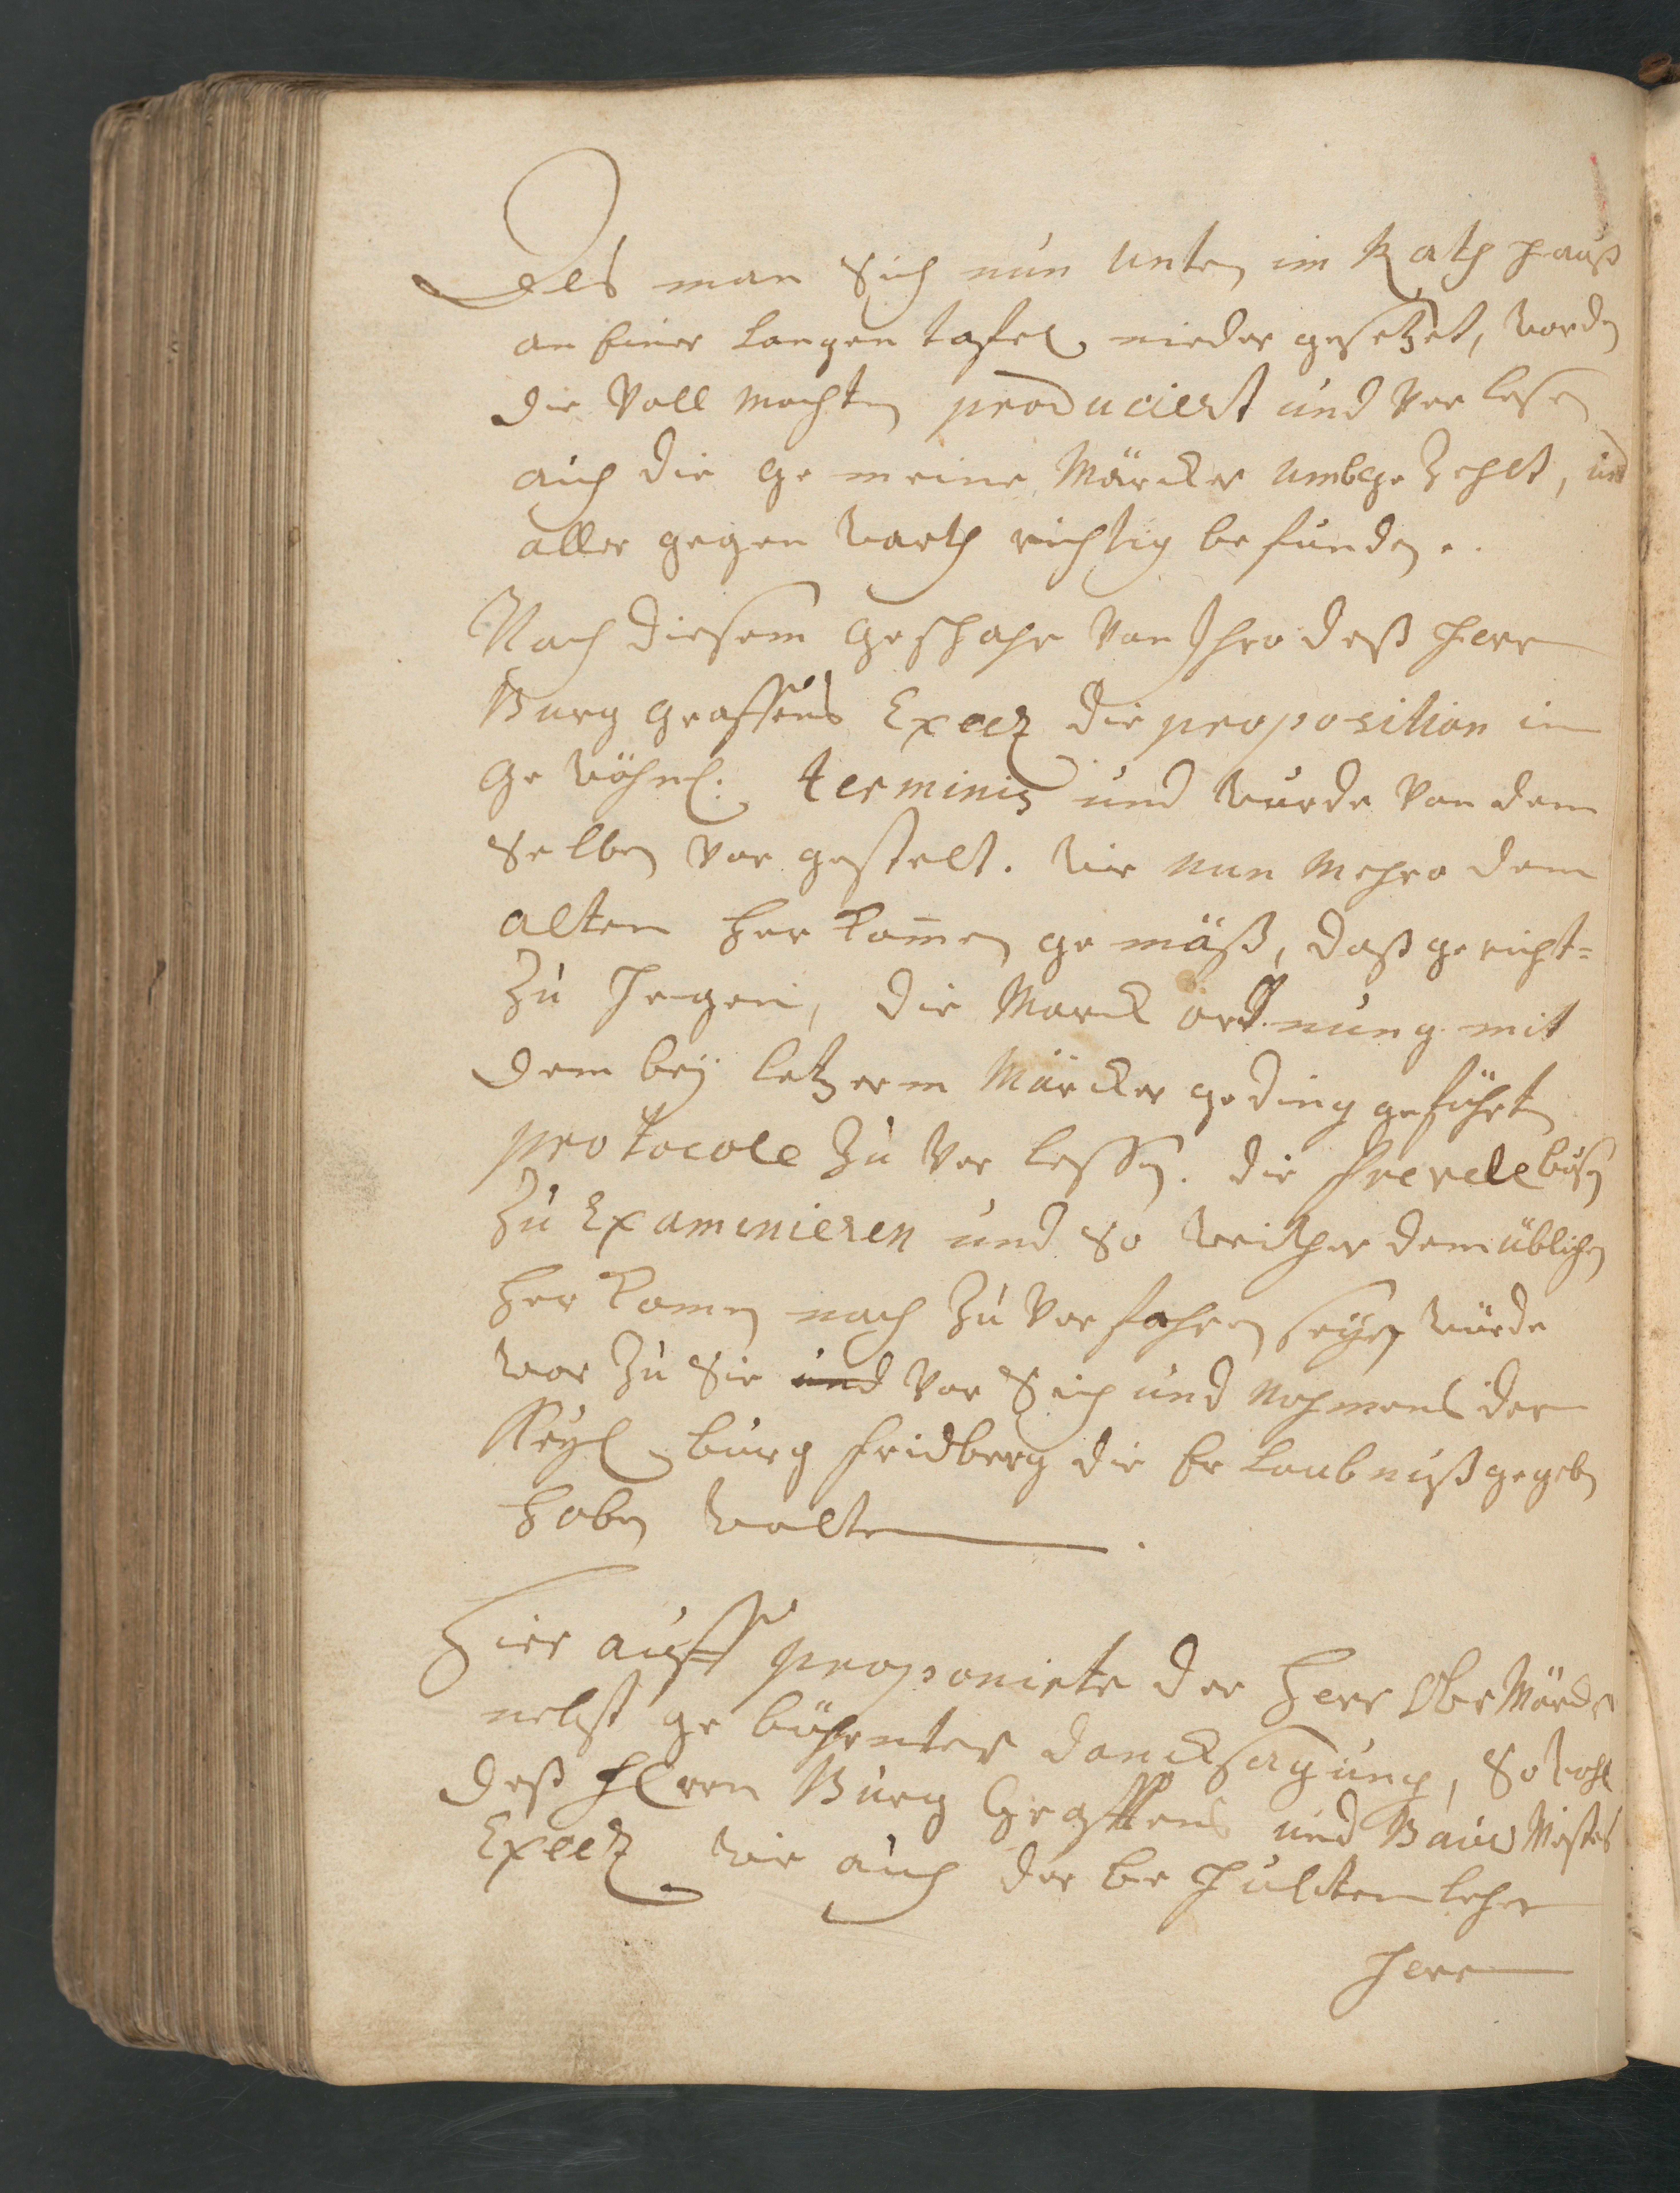 Als man Sich nun unten im Rath hauß
an Einer Langen tafel nieder gesetzet, worden
die Voll Machten produciert und Verlesen
auch die Gemeine Märcker umbge Zehlt, und
aller gegen warth richtig befunden.
Nach diesem Geschahe Von Ihro deß Herrn
Burg Graffens Excez die proposition in
Gewöhnl. terminis und wurde Von dem
Selben Vor gestelt. Wie Nun Mehro dem
alten Herkom̄en gemäß, daß gericht=
Zu Hegen, die Marck ordnung mit
dem beӱ letzerm Märcker geding geführten
protocole Zu Verlessen. die frevelbußen
Zu Examinieren und So weither dem üblichen
Herkomen nach Zu Verfahren seÿen würde
war Zu Sie und Vor Sich und Nahmens der
Keyl. burg Fridberg die Erlaubnuß gegeben
Haben wolten.
Hier auff proponirte der Herr Ober Märcker
nebst gebührenter dancksagung, So wohl
deß Herrn Burg Graffens und Bauw Meisters
Excez wie auch der be Hülten lehen
Herr